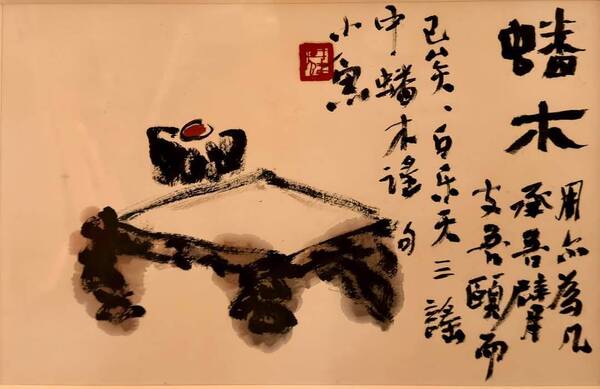 蟠木
用尔為几
承吾臂
支吾頤而
已矣、白乐天三謠
中蟠木謠句
小